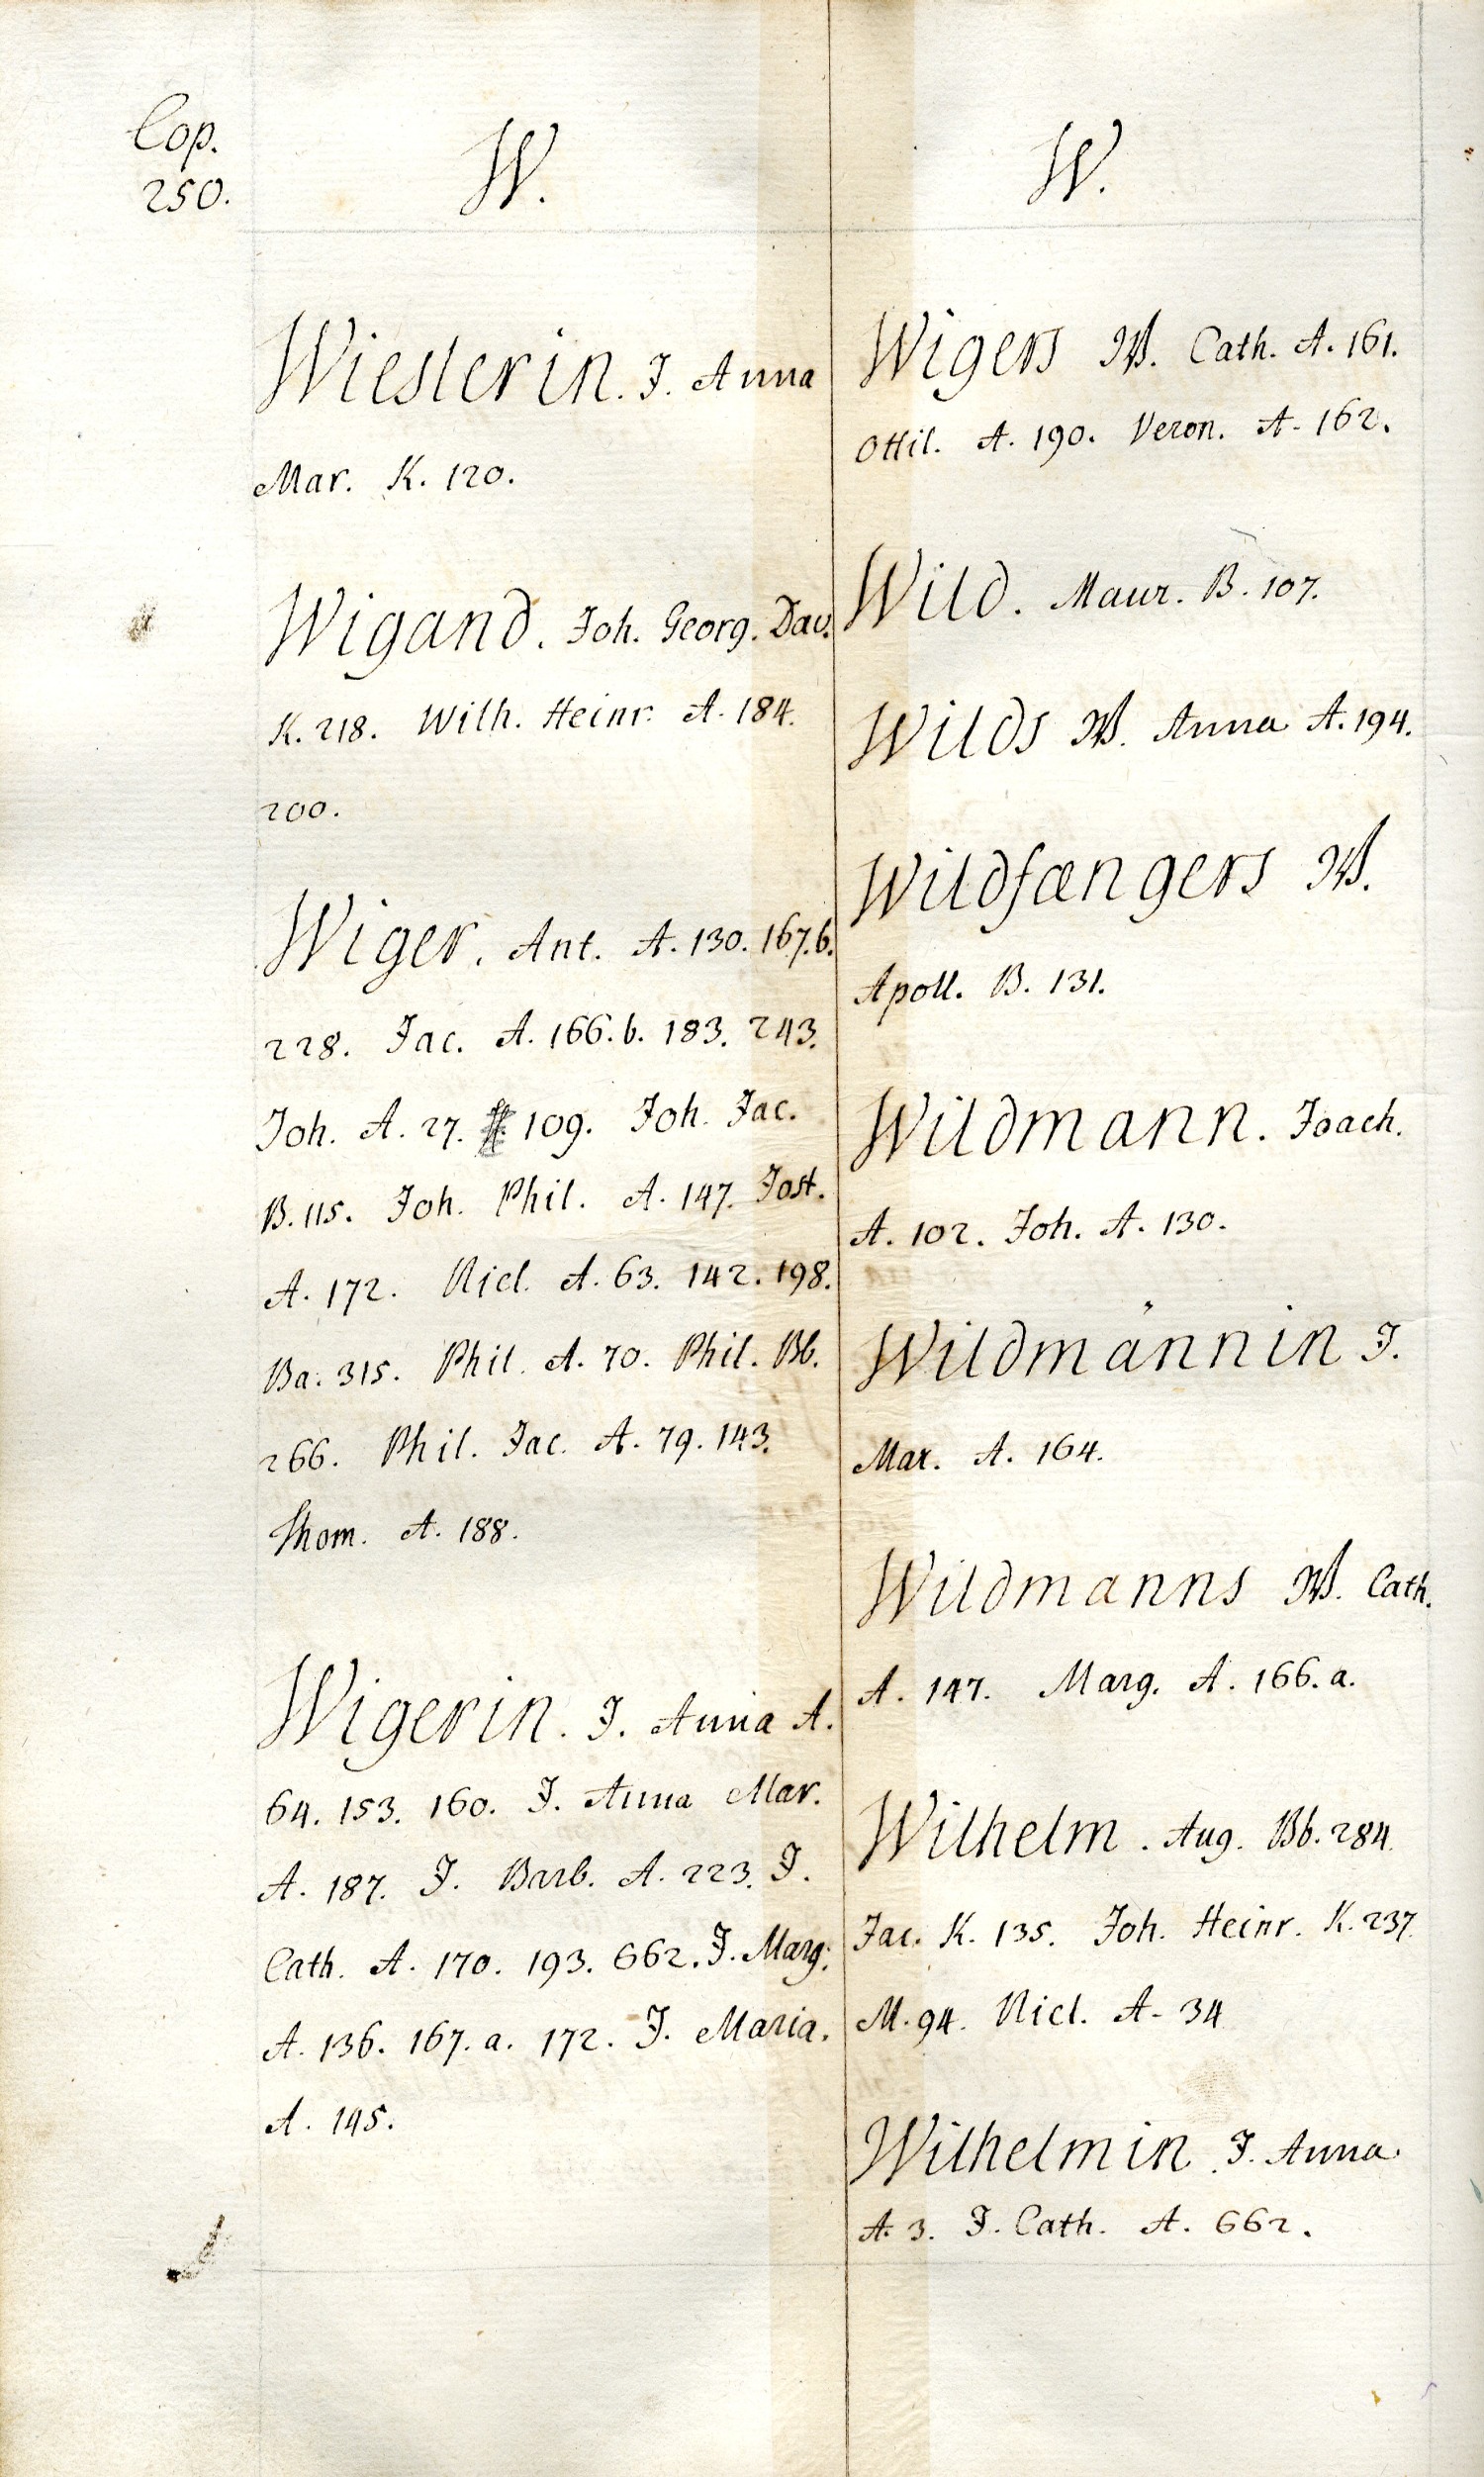 Cop.
250.
W.
Wieslerin. J. Anna
Mar. K. 120.
Wigand. Joh. Georg. Dav.
K. 218. Wilh. Heinr. A. 184.
200.
Wiger. Ant. A. 130. 167.b.
228. Jac. A. 166.b. 183. 243.
Joh. A. 27. 109. Joh. Jac.
B. 115. Joh. Phil. A. 147. Jost.
A. 172. Nicl. A. 63. 142. 198.
Ba. 315. Phil. A. 70. Phil. Bb.
266. Phil. Jac. A. 79. 143.
Thom. A. 188.
Wigerin. J. Anna A.
64. 153. 160. J. Anna Mar.
A. 187. J. Barb. A. 223. J.
Cath. A. 170. 193. 662. J. Marg.
A. 136. 167.a. 172. J. Maria.
A. 145.
W.
Wigers W. Cath. A. 161.
Ottil. A. 190. Veron. A. 162.
Wild. Maur. B. 107.
Wilds W. Anna A. 194.
Wildfængers W.
Apoll. B. 131.
Wildmann. Joach.
A. 102. Joh. A. 130.
Wildmännin J.
Mar. A. 164.
Wildmanns W. Cath.
A. 147. Marg. A. 166.a.
Wilhelm. Aug. Bb. 284.
Jac. K. 135. Joh. Heinr. K. 237.
M. 94. Nicl. A. 34
Wilhelmin. J. Anna
A. 3. J. Cath. A. 662.